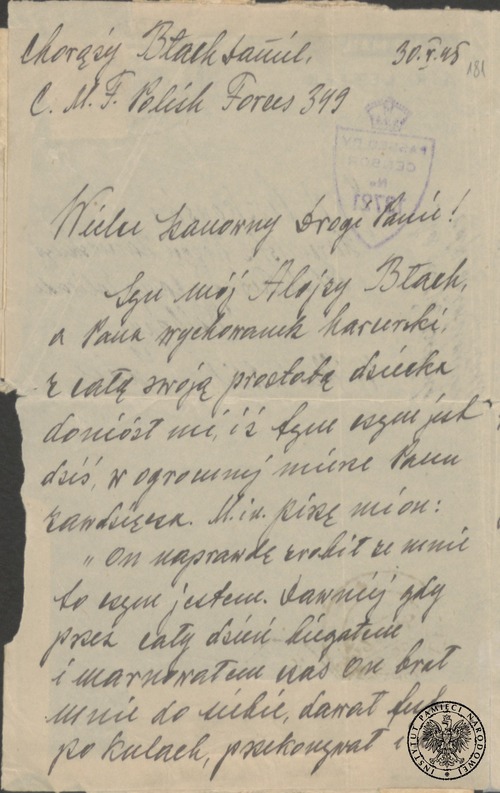 Chorąży Błach Kamil. 30.V.45
181
C. M. F. Polish Forces 349
PASSED BY
CENSOR
No
13721
Wielce Szanowny Drogi Panie!
Syn mój Alojzy Błach,
a Pana wychowanek harcerski,
z całą swoją prostotą dziecka
doniósł mi, iż tym czym jest
dziś, w ogromnej mierze Panu
zawdzięcza. M.in. piszę mi on:
„On naprawdę zrobił ze mnie
to czym jestem. Dawniej gdy
przez cały dzień biegałem
i marnowałem czas On brał
mnie do siebie, dawał
po kulach, przekonywał i
INSTYTUT PAMIĘCI NARODOWEJ